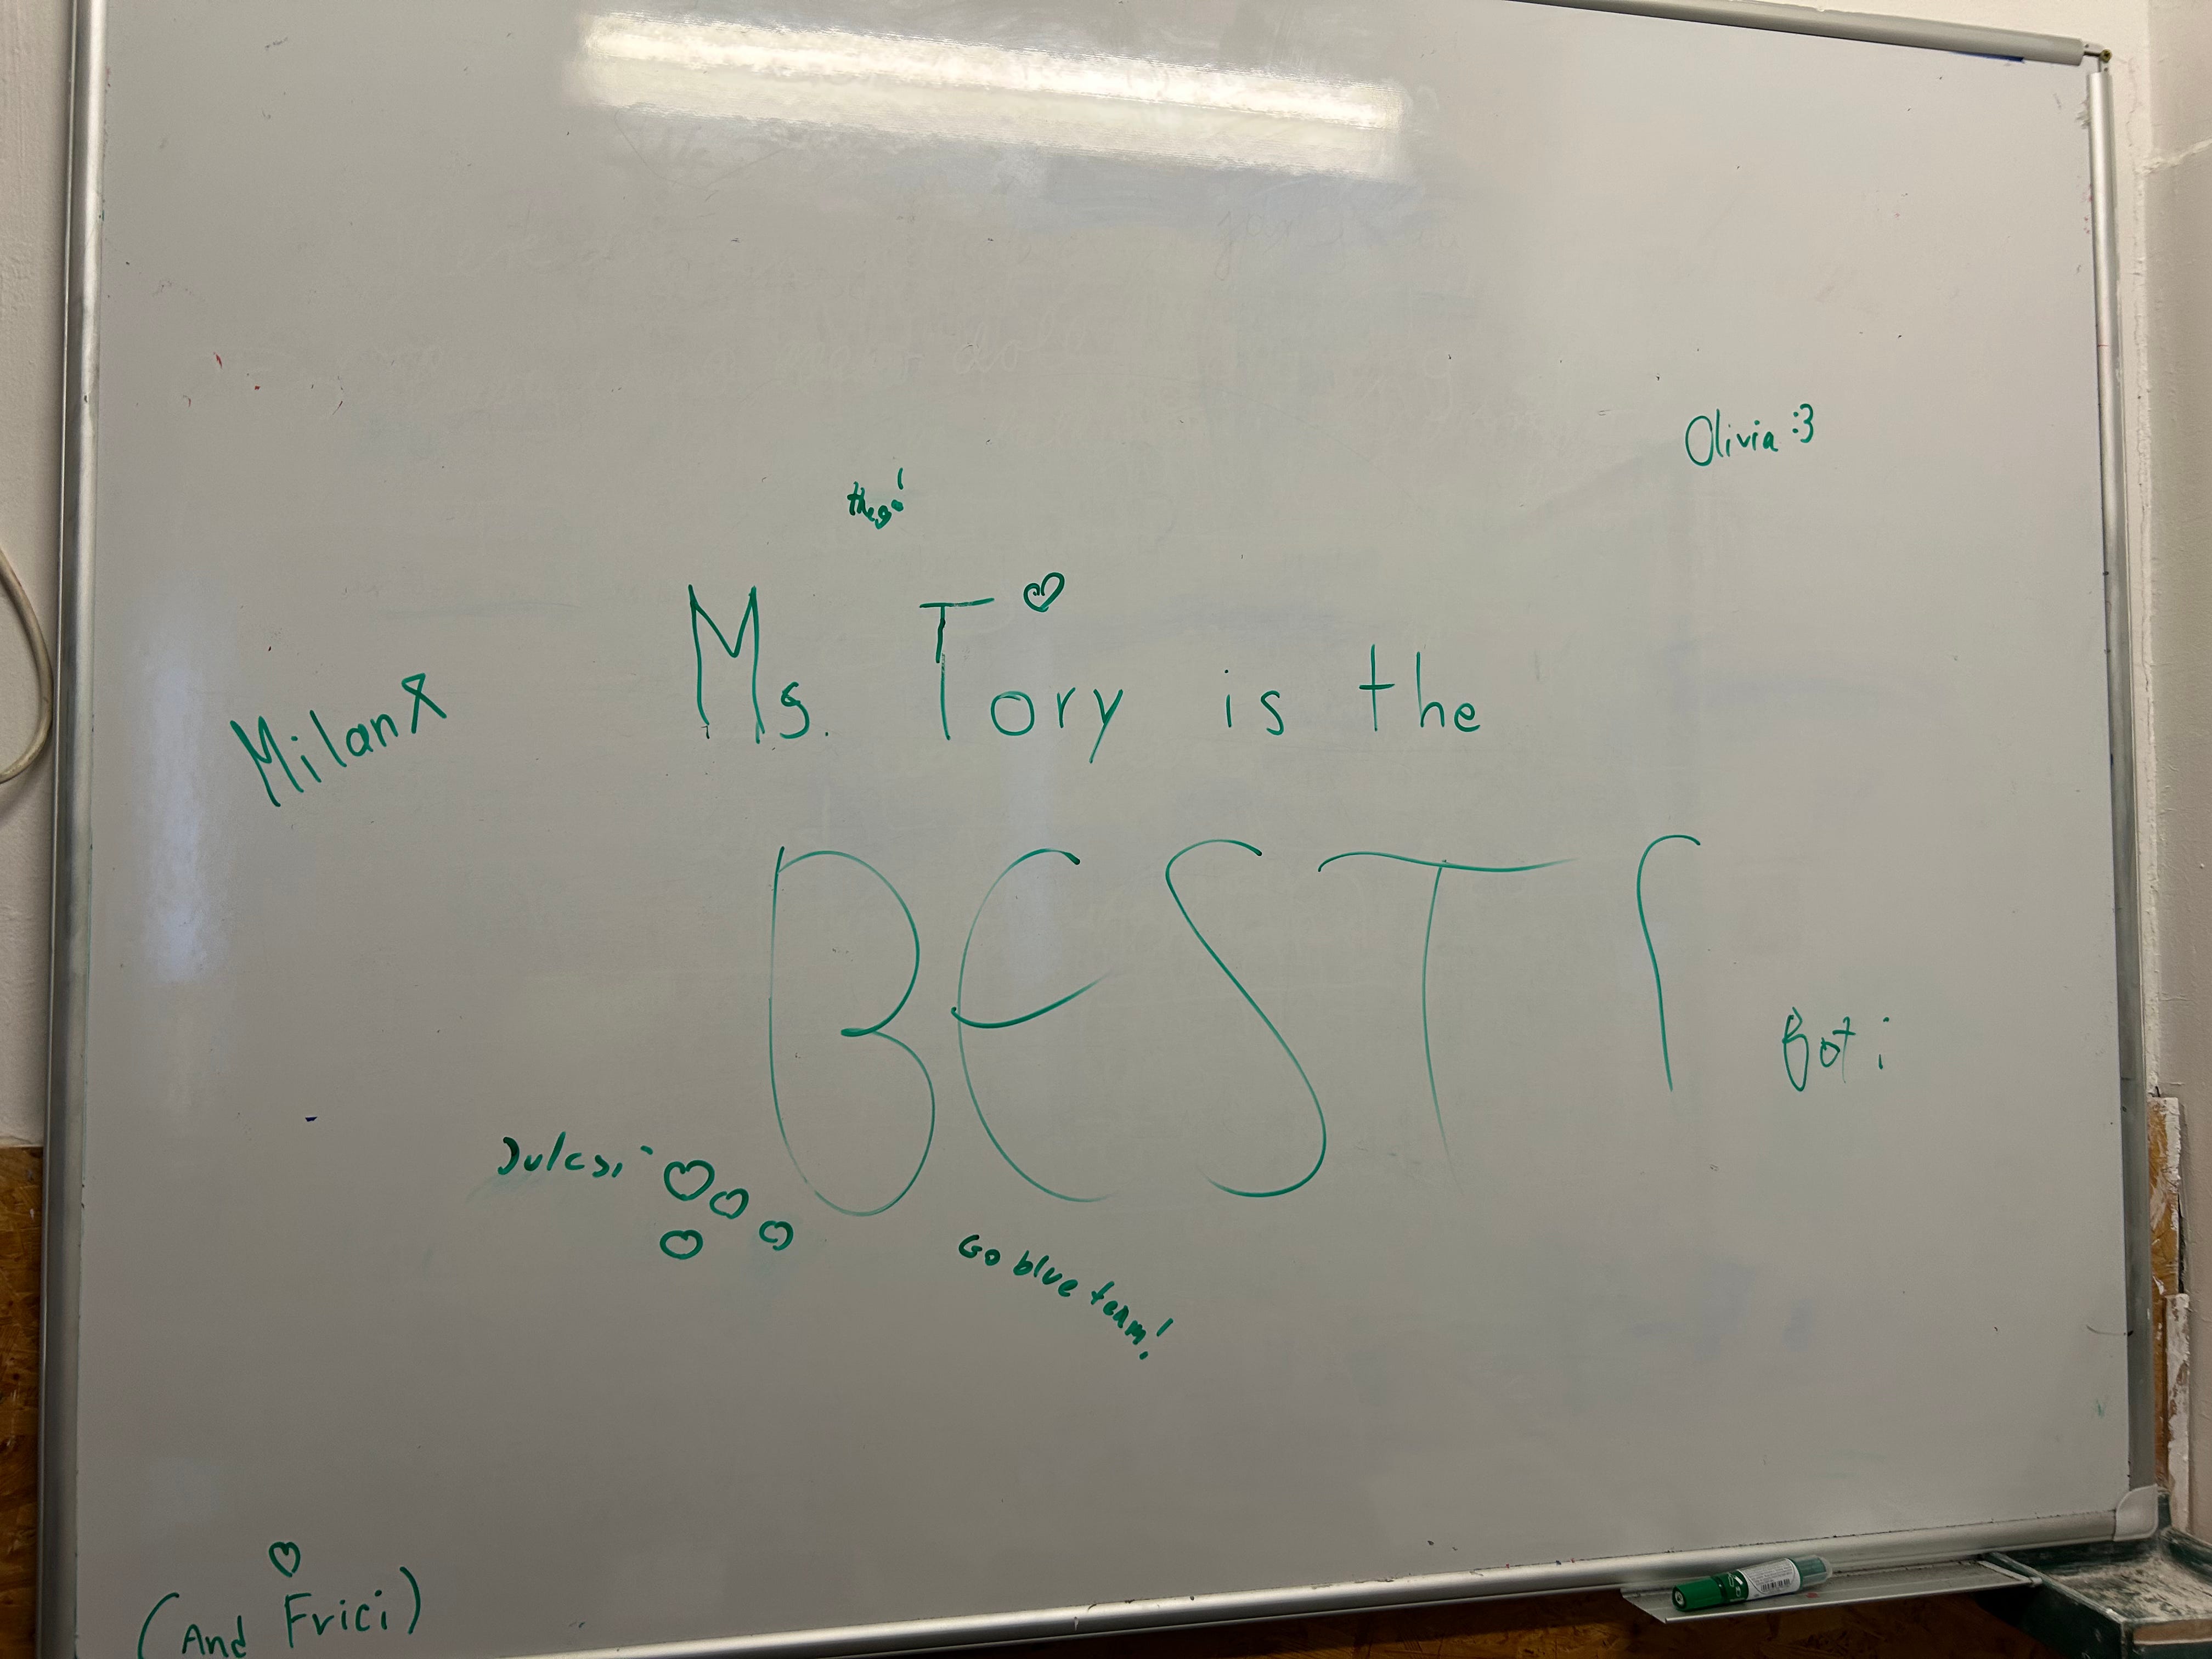 Olivia :3
Ms. Tory is the
Milan
BEST!
Boti
Julcsi
Go blue team!
(And Frici)